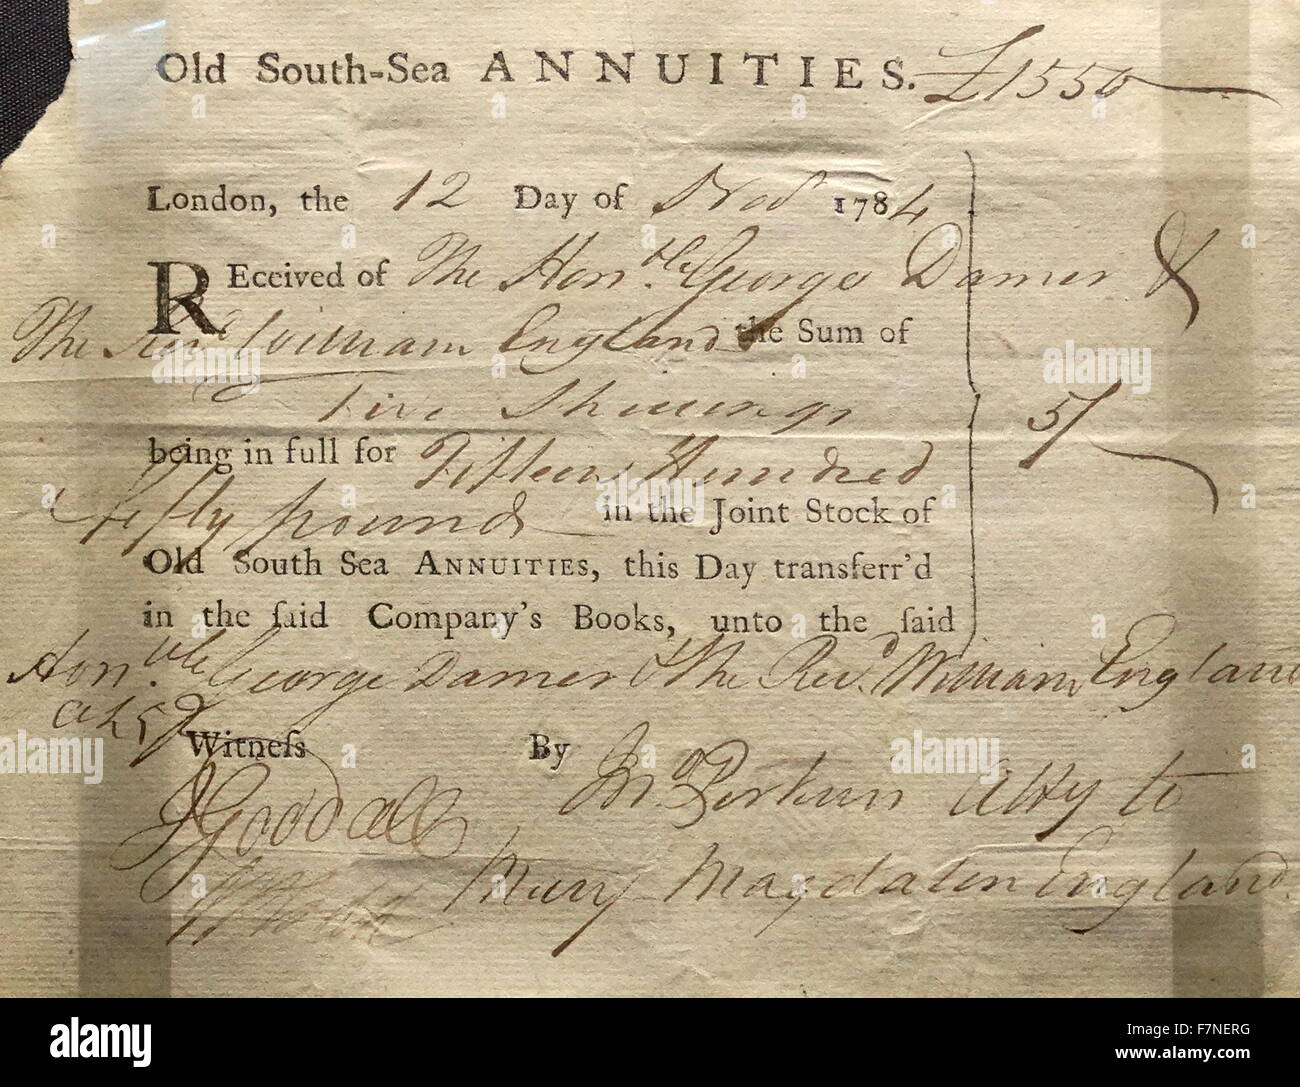 Old South-Sea ANNUITIES. £1550
London, the 12 Day of Novr 1784
REceived of The Honble. George Damer &
The Revd. William England the Sum of
Five Shillings
5/
being in full for Fifteen Hundred
& fifty pounds in the Joint Stock of
Old South Sea ANNUITIES, this Day transferr'd
in the ſaid Company's Books, unto the ſaid
Honble. George Damer & The Revd. William England
Witneſs By Jno. Perkins Atty to
J Goodall Mary Magdalen England
a alamy stock photo
F7NERG
www.alamy.com